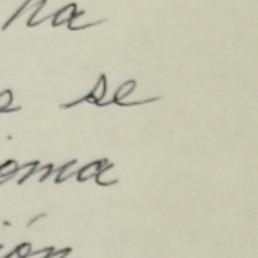 na
s se
oma
ión